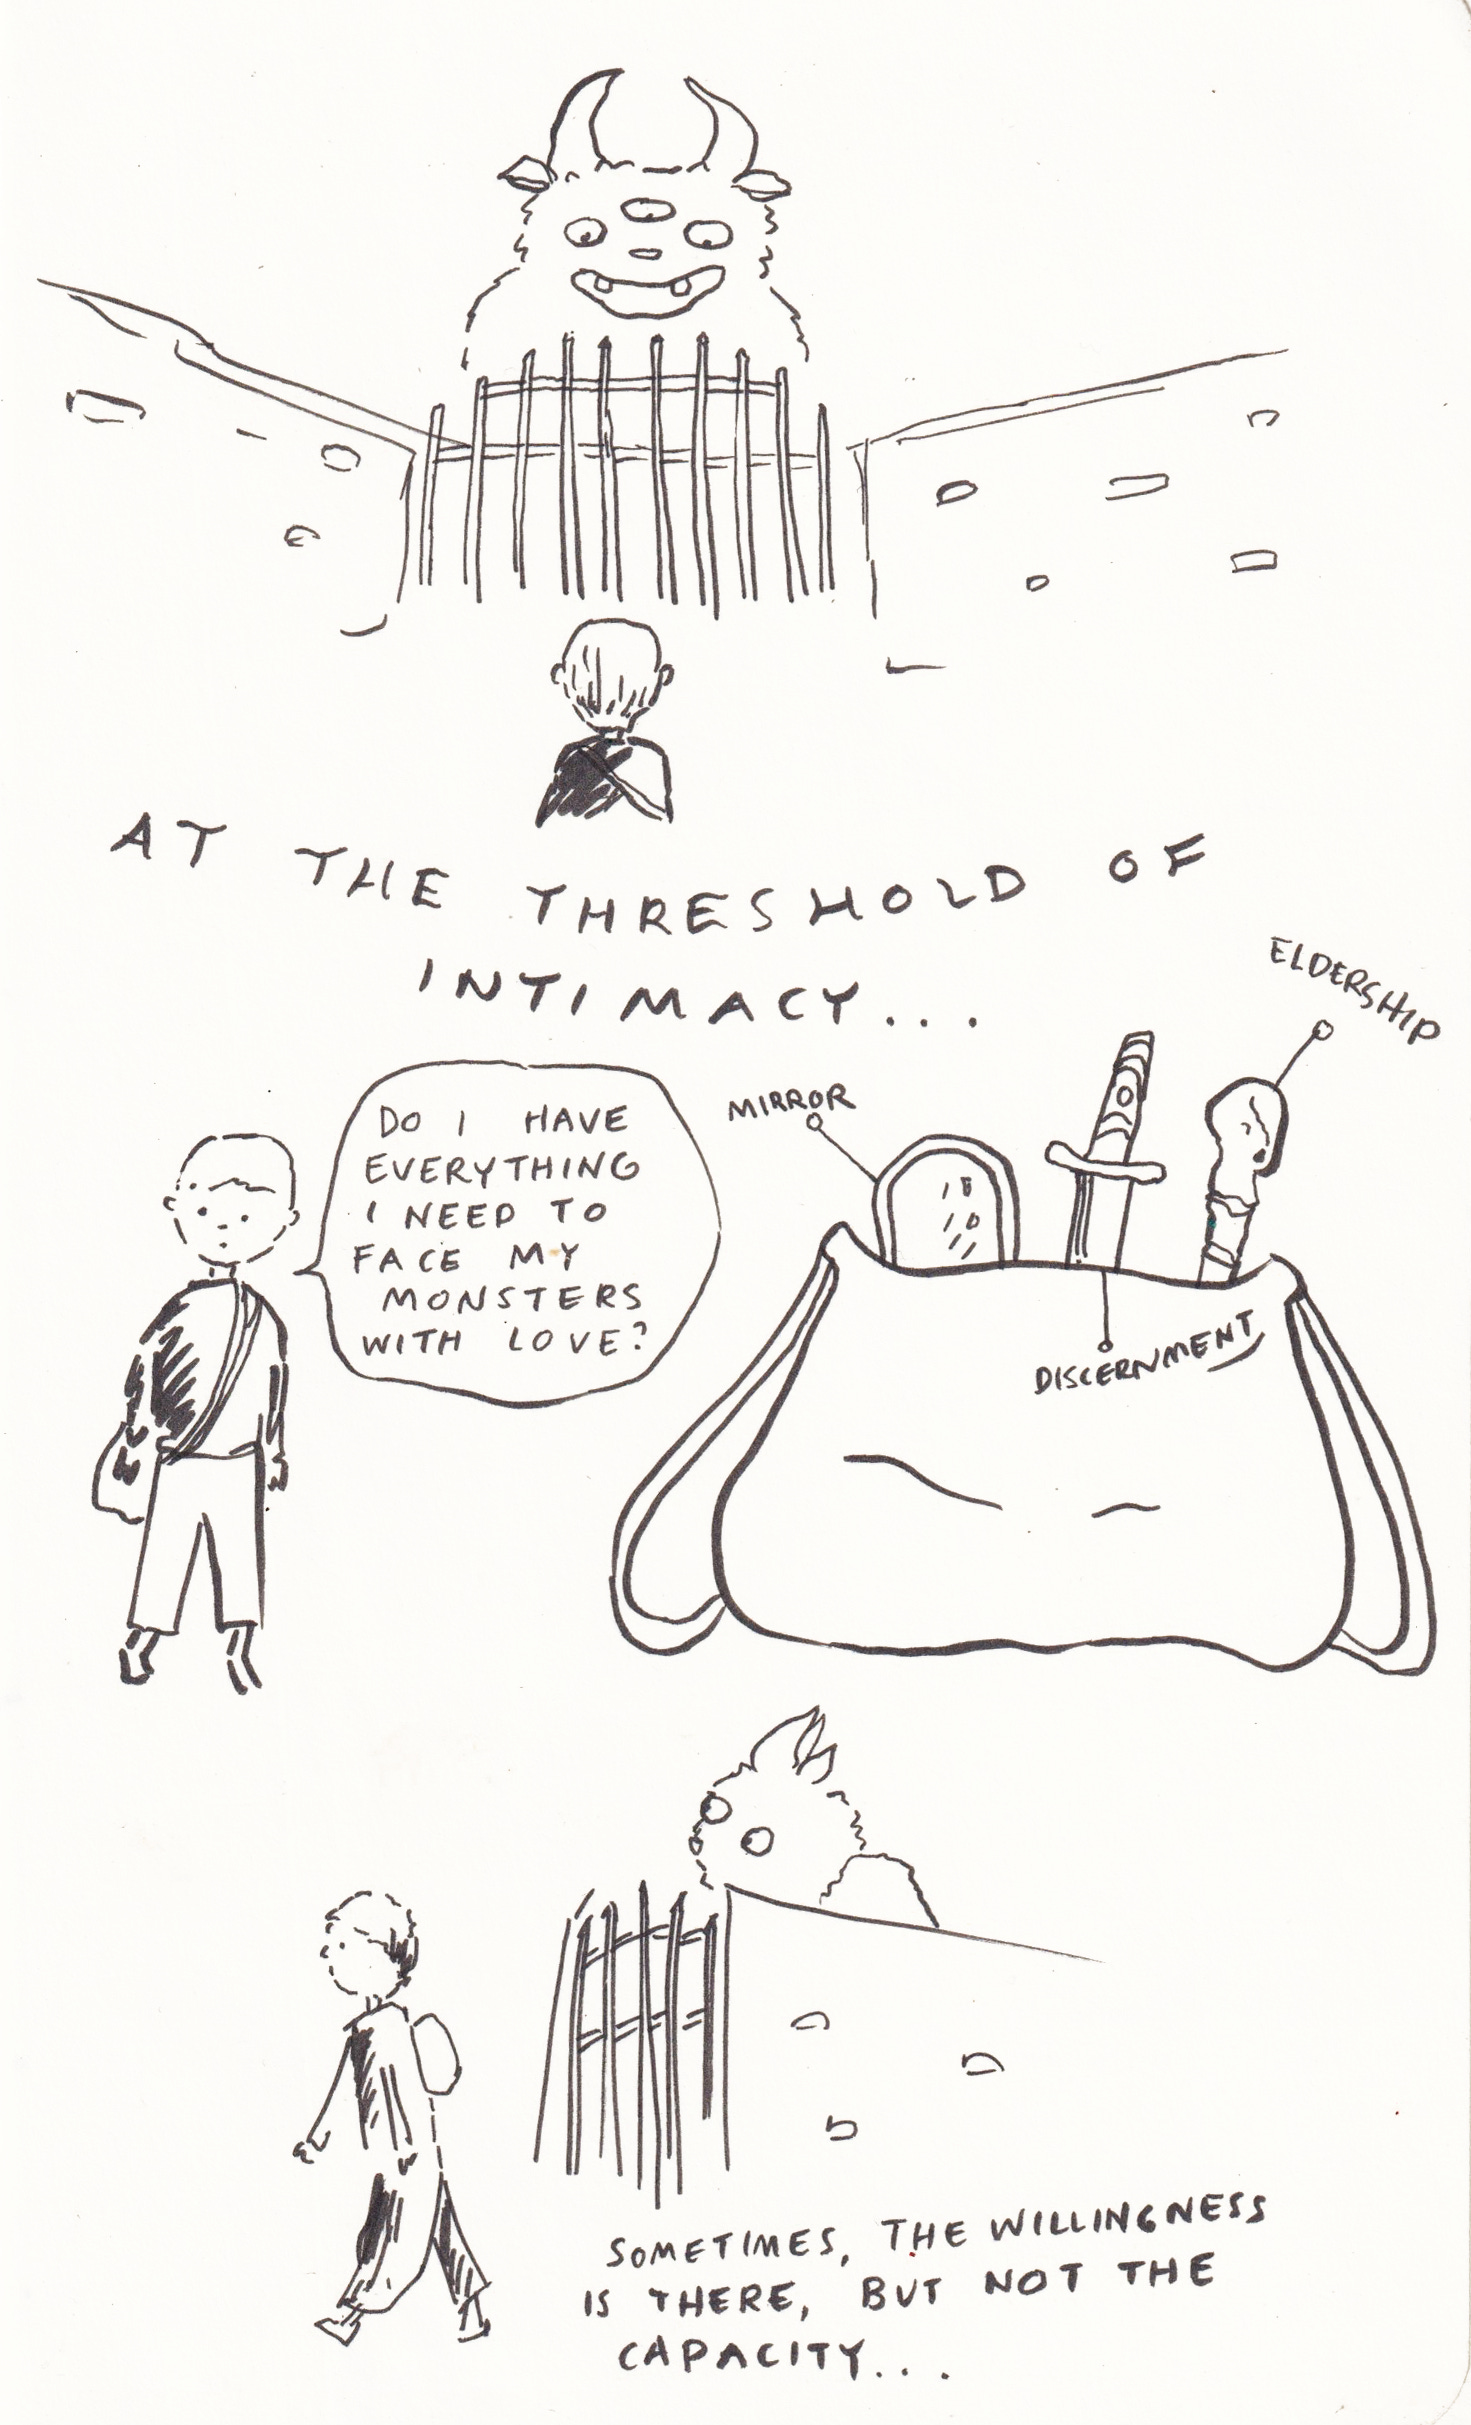 AT THE THRESHOLD OF
INTIMACY...
DO I HAVE
EVERYTHING
I NEED TO
FACE MY
MONSTERS
WITH LOVE?
MIRROR
ELDERSHIP
DISCERNMENT
SOMETIMES, THE WILLINGNESS
IS THERE, BUT NOT THE
CAPACITY...